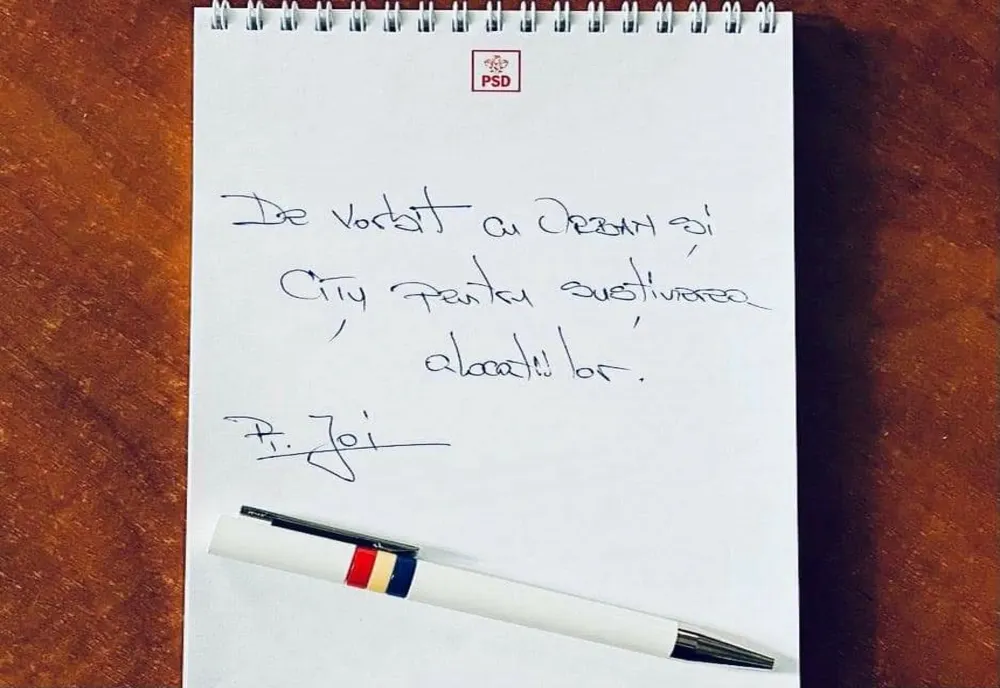 PSD
De vorbit cu ORBAN și
Cîțu pentru susținerea
alocațiilor.
Pt. Joi